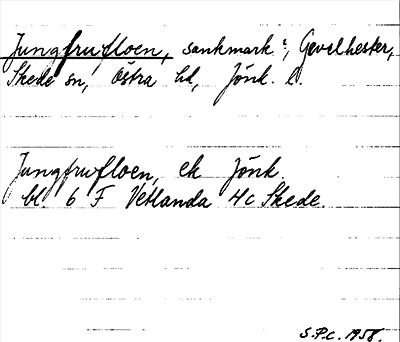 Jungfrufloen, sankmark?, Gevelhester,
Skede sn, Östra hd, Jönk. l.
Jungfrufloen, ek Jönk.
bl. 6 F Vetlanda 4c Skede.
S.P.C. 1958.